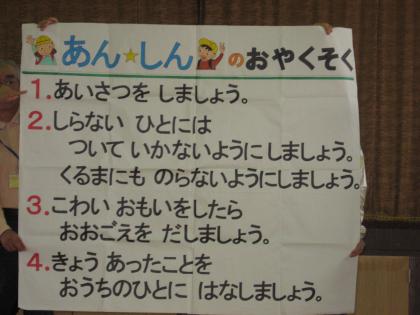 あん☆しん のおやくそく
1.あいさつを しましょう。
2.しらない ひとには
ついて いかないように しましょう。
くるまにも のらないようにしましょう。
3.こわい おもいをしたら
おおごえを だしましょう。
4.きょう あったことを
おうちのひとに はなしましょう。